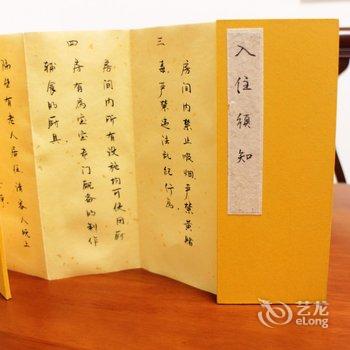 入住须知
三
房间内禁止吸烟严禁黄赌
毒严禁违法乱纪行为
四
房间内所有设施均可使用厨
房有为宝宝专门配备的制作
辅食的厨具
隔壁有老人居住请客人晚上
艺龙
eLong